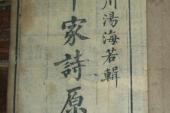 川湯海若輯
家詩原